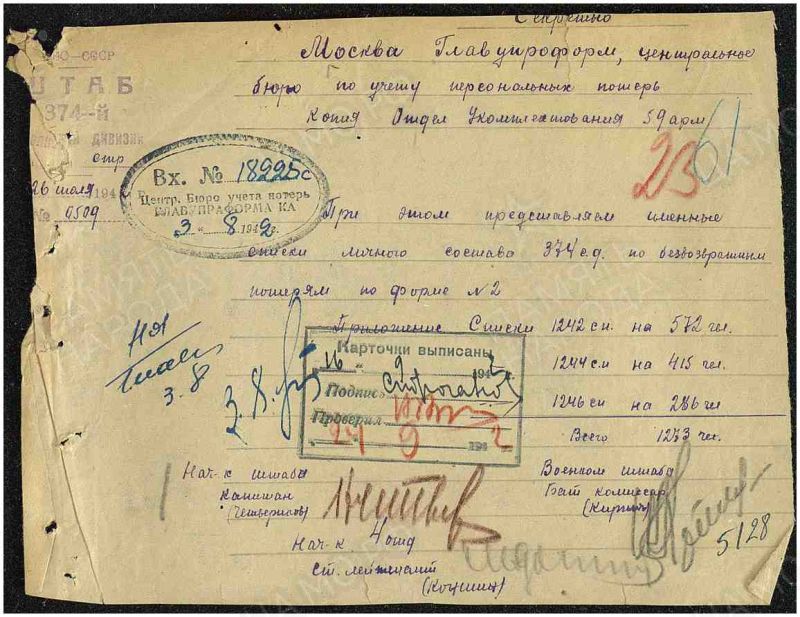 Секретно
НКО-СССР
ШТАБ
374-й
дивизии
стр
26 июля 194
№ 0509
Москва Главупроформ, центральное
бюро по учету персональных потерь
Копия Отдел Укомплектования 59 арм
23
61
Вх. № 18225с
Центр. Бюро учета потерь
ГЛАВУПРАФОРМА КА
"3" 8 1942 г.
При этом представляем именные
списки личного состава 374 с.д. по безвозвратным
потерям по форме №2
Приложение Списки 1242 сп. на 572 чел.
1244 сп на 415 чел.
1246 сп на 286 чел
Всего 1273 чел.
НЯ
3.8
3.8.
Карточки выписаны
"16" 9 194
Подпись
Проверил
"24" 9 1942
Нач-к штаба
Капитан
(Четвериков)
Военком штаба
Бат комиссар
Нач-к 4 отд
Ст. лейтенант
5128